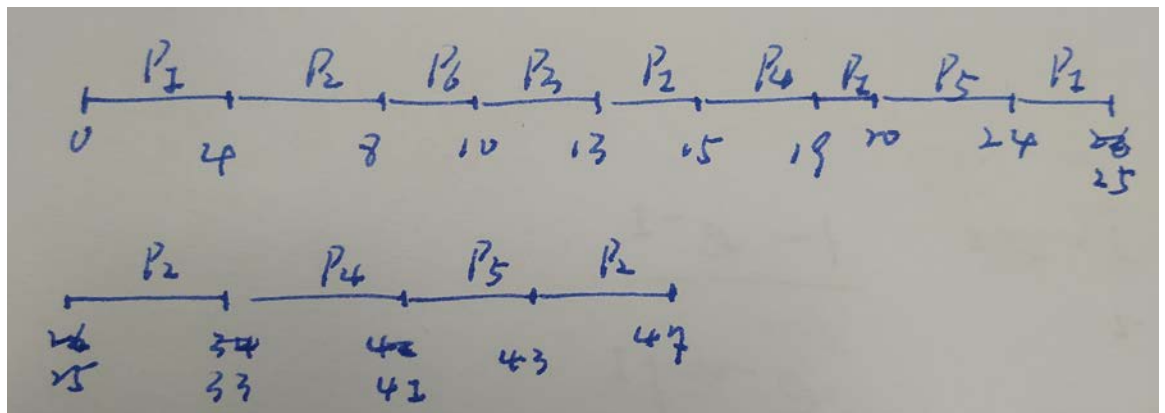 P1 P2 P6 P3 P2 P4 P2 P5 P1
0 4 8 10 13 15 19 20 24
25
P2 P4 P5 P2
43 47
25 33 41